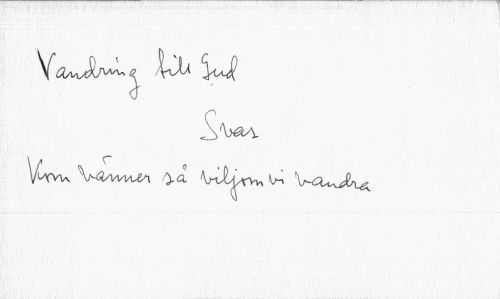 Vandring till Gud
Svas
Kom vänner så viljom vi vandra